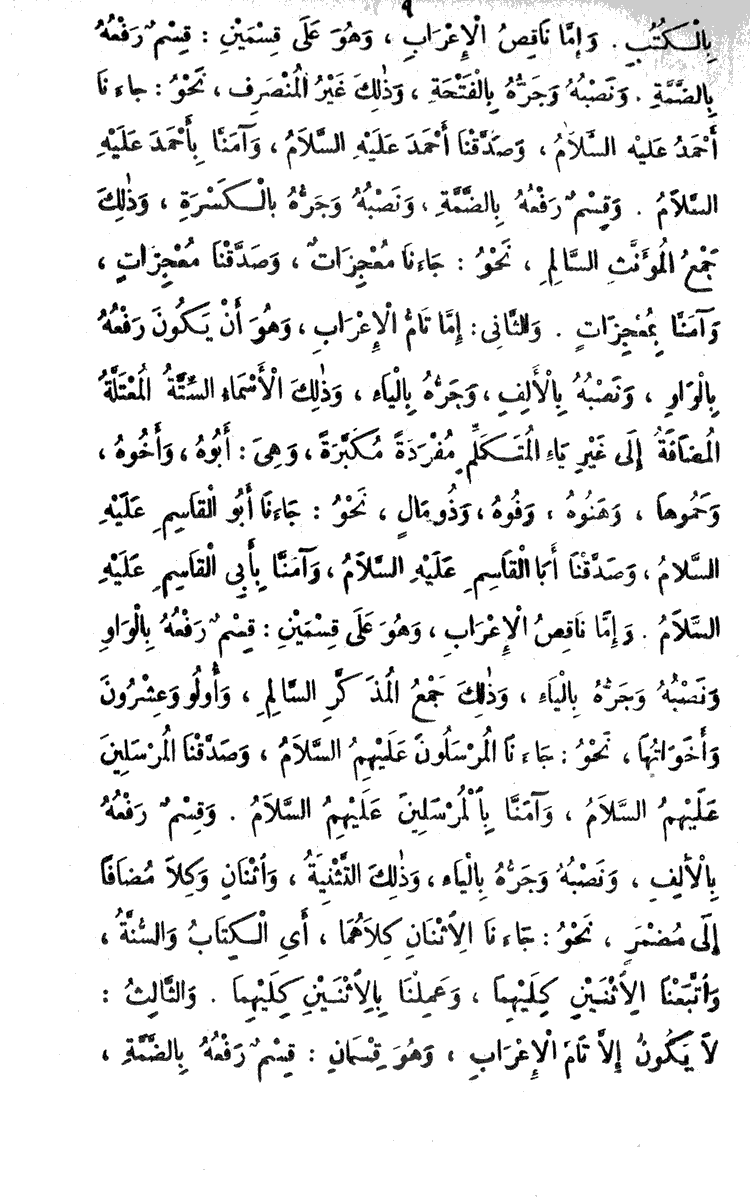 ٩
بِالْكُتُبِ . وَإِمَّا نَاقِصُ الْإِعْرَابِ ، وَهُوَ عَلَى قِسْمَيْنِ : قِسْمٌ رَفْعُهُ
بِالضَّمَّةِ . وَنَصْبُهُ وَجَرُّهُ بِالْفَتْحَةِ ، وَذٰلِكَ غَيْرُ الْمُنْصَرِفِ ، نَحْوُ : جَاءَنَا
أَحْمَدُ عَلَيْهِ السَّلَامُ ، وَصَدَّقْنَا أَحْمَدَ عَلَيْهِ السَّلَامُ ، وَآمَنَّا بِأَحْمَدَ عَلَيْهِ
السَّلَامُ . وَقِسْمٌ رَفْعُهُ بِالضَّمَّةِ ، وَنَصْبُهُ وَجَرُّهُ بِالْكَسْرَةِ ، وَذٰلِكَ
جَمْعُ الْمُؤَنَّثِ السَّالِمِ ، نَحْوُ : جَاءَنَا مُعْجِزَاتٌ ، وَصَدَّقْنَا مُعْجِزَاتٍ ،
وَآمَنَّا بِمُعْجِزَاتٍ . وَالثَّانِى : إِمَّا تَامُّ الْإِعْرَابِ ، وَهُوَ أَنْ يَكُونَ رَفْعُهُ
بِالْوَاوِ ، وَنَصْبُهُ بِالْأَلِفِ ، وَجَرُّهُ بِالْيَاءِ ، وَذٰلِكَ الْأَسْمَاءُ السِّتَّةُ الْمُعْتَلَّةُ
الْمُضَافَةُ إِلَى غَيْرِ يَاءِ الْمُتَكَلِّمِ مُفْرَدَةً مُكَبَّرَةً ، وَهِىَ : أَبُوهُ ، وَأَخُوهُ ،
وَحَمُوهَا ، وَهَنُوهُ ، وَفُوهُ ، وَذُو مَالٍ ، نَحْوُ : جَاءَنَا أَبُو الْقَاسِمِ عَلَيْهِ
السَّلَامُ ، وَصَدَّقْنَا أَبَا الْقَاسِمِ عَلَيْهِ السَّلَامُ ، وَآمَنَّا بِأَبِى الْقَاسِمِ عَلَيْهِ
السَّلَامُ . وَإِمَّا نَاقِصُ الْإِعْرَابِ ، وَهُوَ عَلَى قِسْمَيْنِ : قِسْمٌ رَفْعُهُ بِالْوَاوِ
وَنَصْبُهُ وَجَرُّهُ بِالْيَاءِ ، وَذٰلِكَ جَمْعُ الْمُذَكَّرِ السَّالِمِ ، وَأُولُو وَعِشْرُونَ
وَأَخَوَاتُهَا ، نَحْوُ : جَاءَنَا الْمُرْسَلُونَ عَلَيْهِمُ السَّلَامُ ، وَصَدَّقْنَا الْمُرْسَلِينَ
عَلَيْهِمُ السَّلَامُ ، وَآمَنَّا بِالْمُرْسَلِينَ عَلَيْهِمُ السَّلَامُ . وَقِسْمٌ رَفْعُهُ
بِالْأَلِفِ ، وَنَصْبُهُ وَجَرُّهُ بِالْيَاءِ ، وَذٰلِكَ التَّثْنِيَةُ ، وَاثْنَانِ وَكِلَا مُضَافًا
إِلَى مُضْمَرٍ ، نَحْوُ : جَاءَنَا الِاثْنَانِ كِلَاهُمَا ، أَىِ الْكِتَابُ وَالسُّنَّةُ ،
وَاتَّبَعْنَا الِاثْنَيْنِ كِلَيْهِمَا ، وَعَمِلْنَا بِالِاثْنَيْنِ كِلَيْهِمَا . وَالثَّالِثُ :
لَا يَكُونُ إِلَّا تَامَّ الْإِعْرَابِ ، وَهُوَ قِسْمَانِ : قِسْمٌ رَفْعُهُ بِالضَّمَّةِ ،